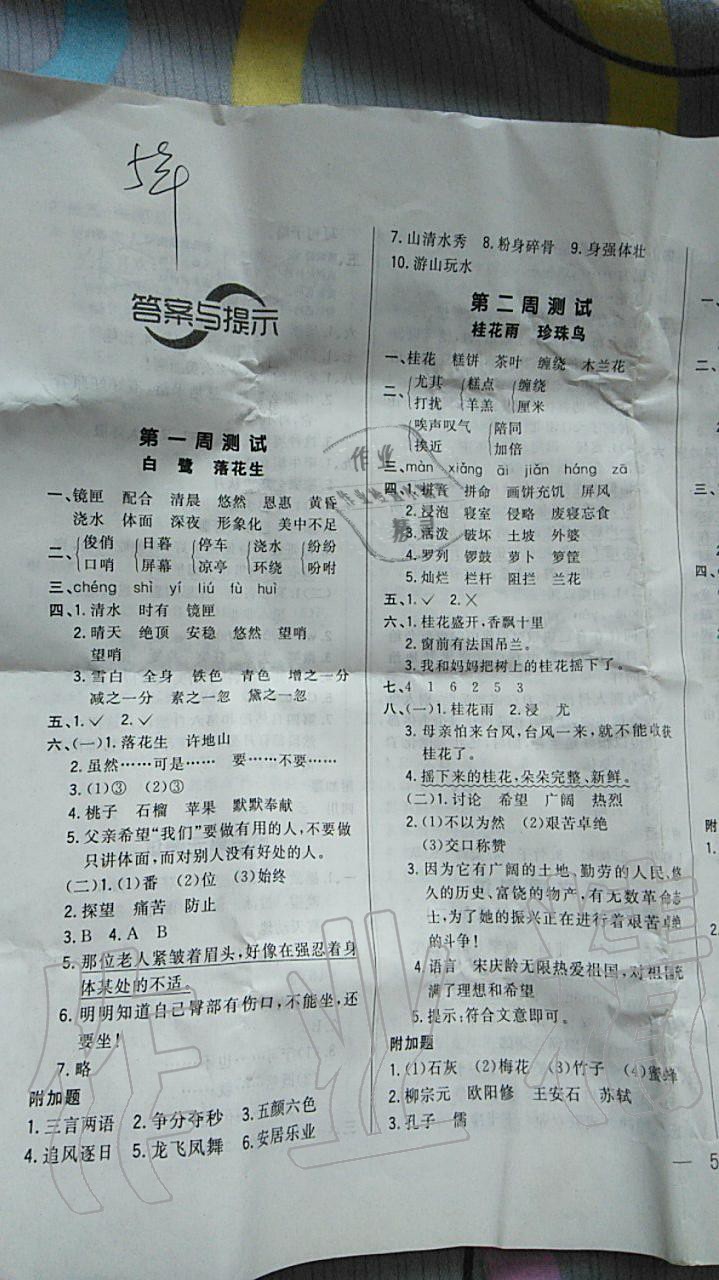 5年
答案与提示
第一周测试
白 鹭 落花生
一、镜匣 配合 清晨 悠然 恩惠 黄昏
浇水 体面 深夜 形象化 美中不足
二、{俊俏 {日暮 {停车 {浇水 {纷纷
口哨 屏幕 凉亭 环绕 吩咐
三、chéng shì yí liú fù huì
四、1.清水 时有 镜匣
2.晴天 绝顶 安稳 悠然 望哨
望哨
3.雪白 全身 铁色 青色 增之一分
减之一分 素之一忽 黛之一忽
五、1.✓ 2.✓
六、(一)1.落花生 许地山
2.虽然……可是…… 要……不要……
3.(1)③ (2)③
4.桃子 石榴 苹果 默默奉献
5.父亲希望“我们”要做有用的人,不要做
只讲体面,而对别人没有好处的人。
(二)1.(1)番 (2)位 (3)始终
2.探望 痛苦 防止
3.B 4.A B
5.那位老人紧皱着眉头,好像在强忍着身
体某处的不适。
6.明明知道自己臀部有伤口,不能坐,还
要坐!
7.略
附加题
1.三言两语 2.争分夺秒 3.五颜六色
4.追风逐日 5.龙飞凤舞 6.安居乐业
7.山清水秀 8.粉身碎骨 9.身强体壮
10.游山玩水
第二周测试
桂花雨 珍珠鸟
一、桂花 糕饼 茶叶 缠绕 木兰花
二、{尤其 {糕点 {缠绕
打扰 羊羔 厘米
{唉声叹气 {陪同
挨近 加倍
三、màn xiāng āi jiǎn háng zā
四、1.拼音 拼命 画饼充饥 屏风
2.浸泡 寝室 侵略 废寝忘食
3.活泼 破坏 土坡 外婆
4.罗列 锣鼓 萝卜 箩筐
5.灿烂 栏杆 阻拦 兰花
五、1.✓ 2.✗
六、1.桂花盛开,香飘十里
2.窗前有法国吊兰。
3.我和妈妈把树上的桂花摇下了。
七、4 1 6 2 5 3
八、(一)1.桂花雨 2.浸 尤
3.母亲怕来台风,台风一来,就不能收获
桂花了。
4.摇下来的桂花,朵朵完整、新鲜。
(二)1.讨论 希望 广阔 热烈
2.(1)不以为然 (2)艰苦卓绝
(3)交口称赞
3.因为它有广阔的土地、勤劳的人民、悠
久的历史、富饶的物产,有无数革命志
士,为了她的振兴正在进行着艰苦卓绝
的斗争!
4.语言 宋庆龄无限热爱祖国,对祖国充
满了理想和希望
5.提示:符合文意即可。
附加题
1.(1)石灰 (2)梅花 (3)竹子 (4)蜜蜂
2.柳宗元 欧阳修 王安石 苏轼
3.孔子 儒
— 5
一、
二、
附
1.
2.
作业精